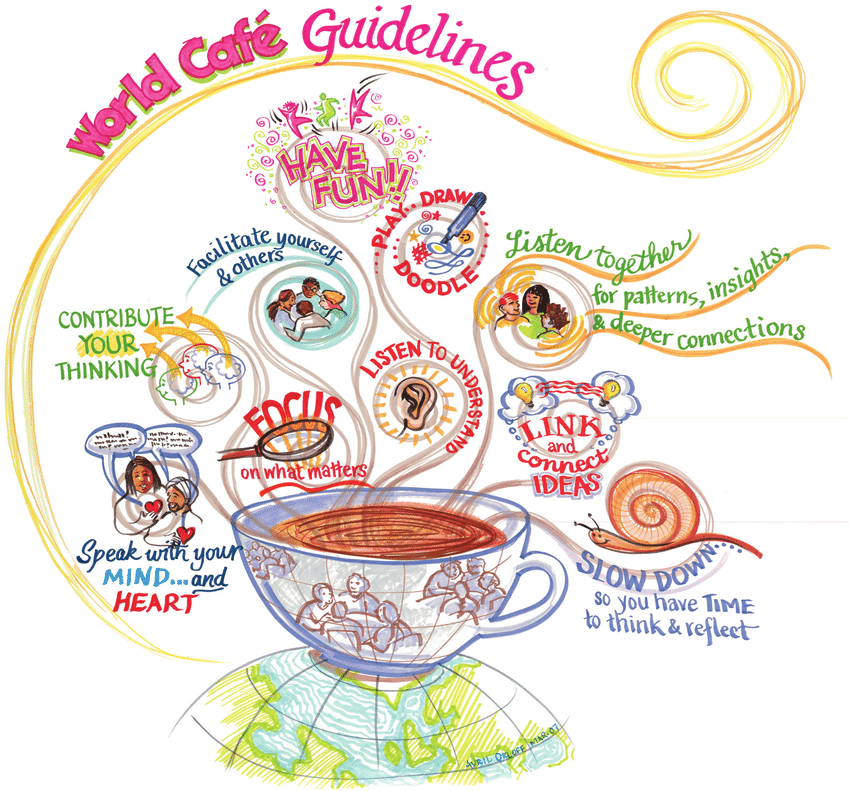 World Café Guidelines
HAVE
FUN!!
PLAY.. DRAW..
DOODLE...
Facilitate yourself
& others
Listen together
for patterns, insights,
& deeper connections
CONTRIBUTE
YOUR
THINKING
LISTEN TO UNDERSTAND
FOCUS
on what matters
LINK
and
connect
IDEAS
Speak with your
MIND...and
HEART
SLOW DOWN...
so you have TIME
to think & reflect
AVRIL ORLOFF MAR.07